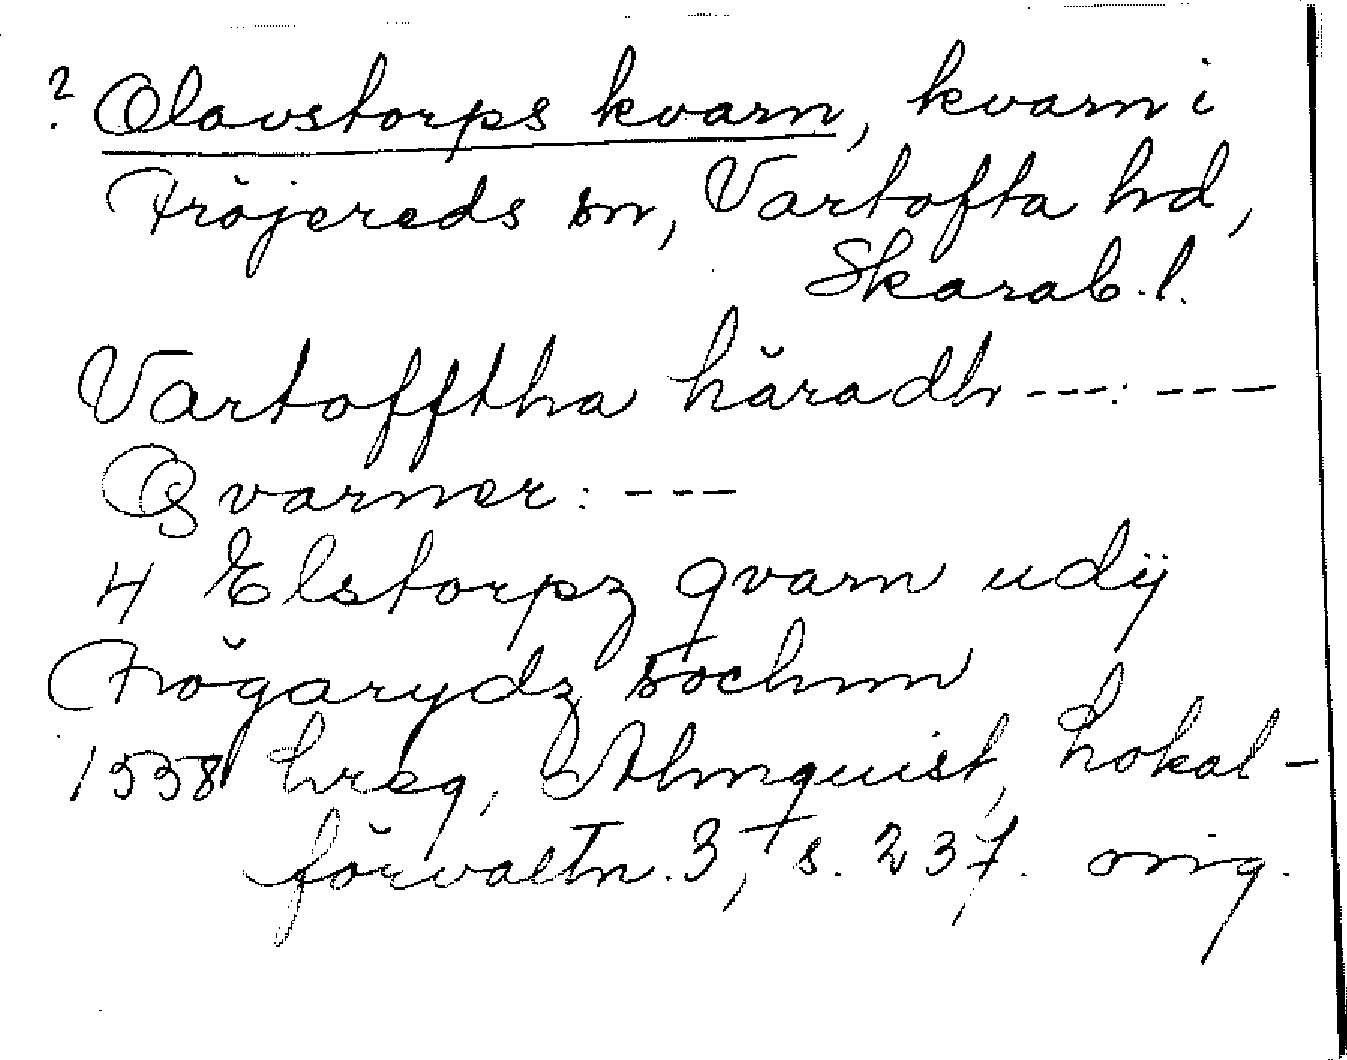 ? Olavstorps kvarn, kvarn i
Fröjereds sn, Vartofta hd,
Skarab. l.
Vartofftha häradh ---:---
Qvarner: ---
4 Elstorpz qvarn udÿ
Frögarydz sochnn
1538 hreg, Almquist, Lokal-
förvaltn. 3, s. 237. orig.